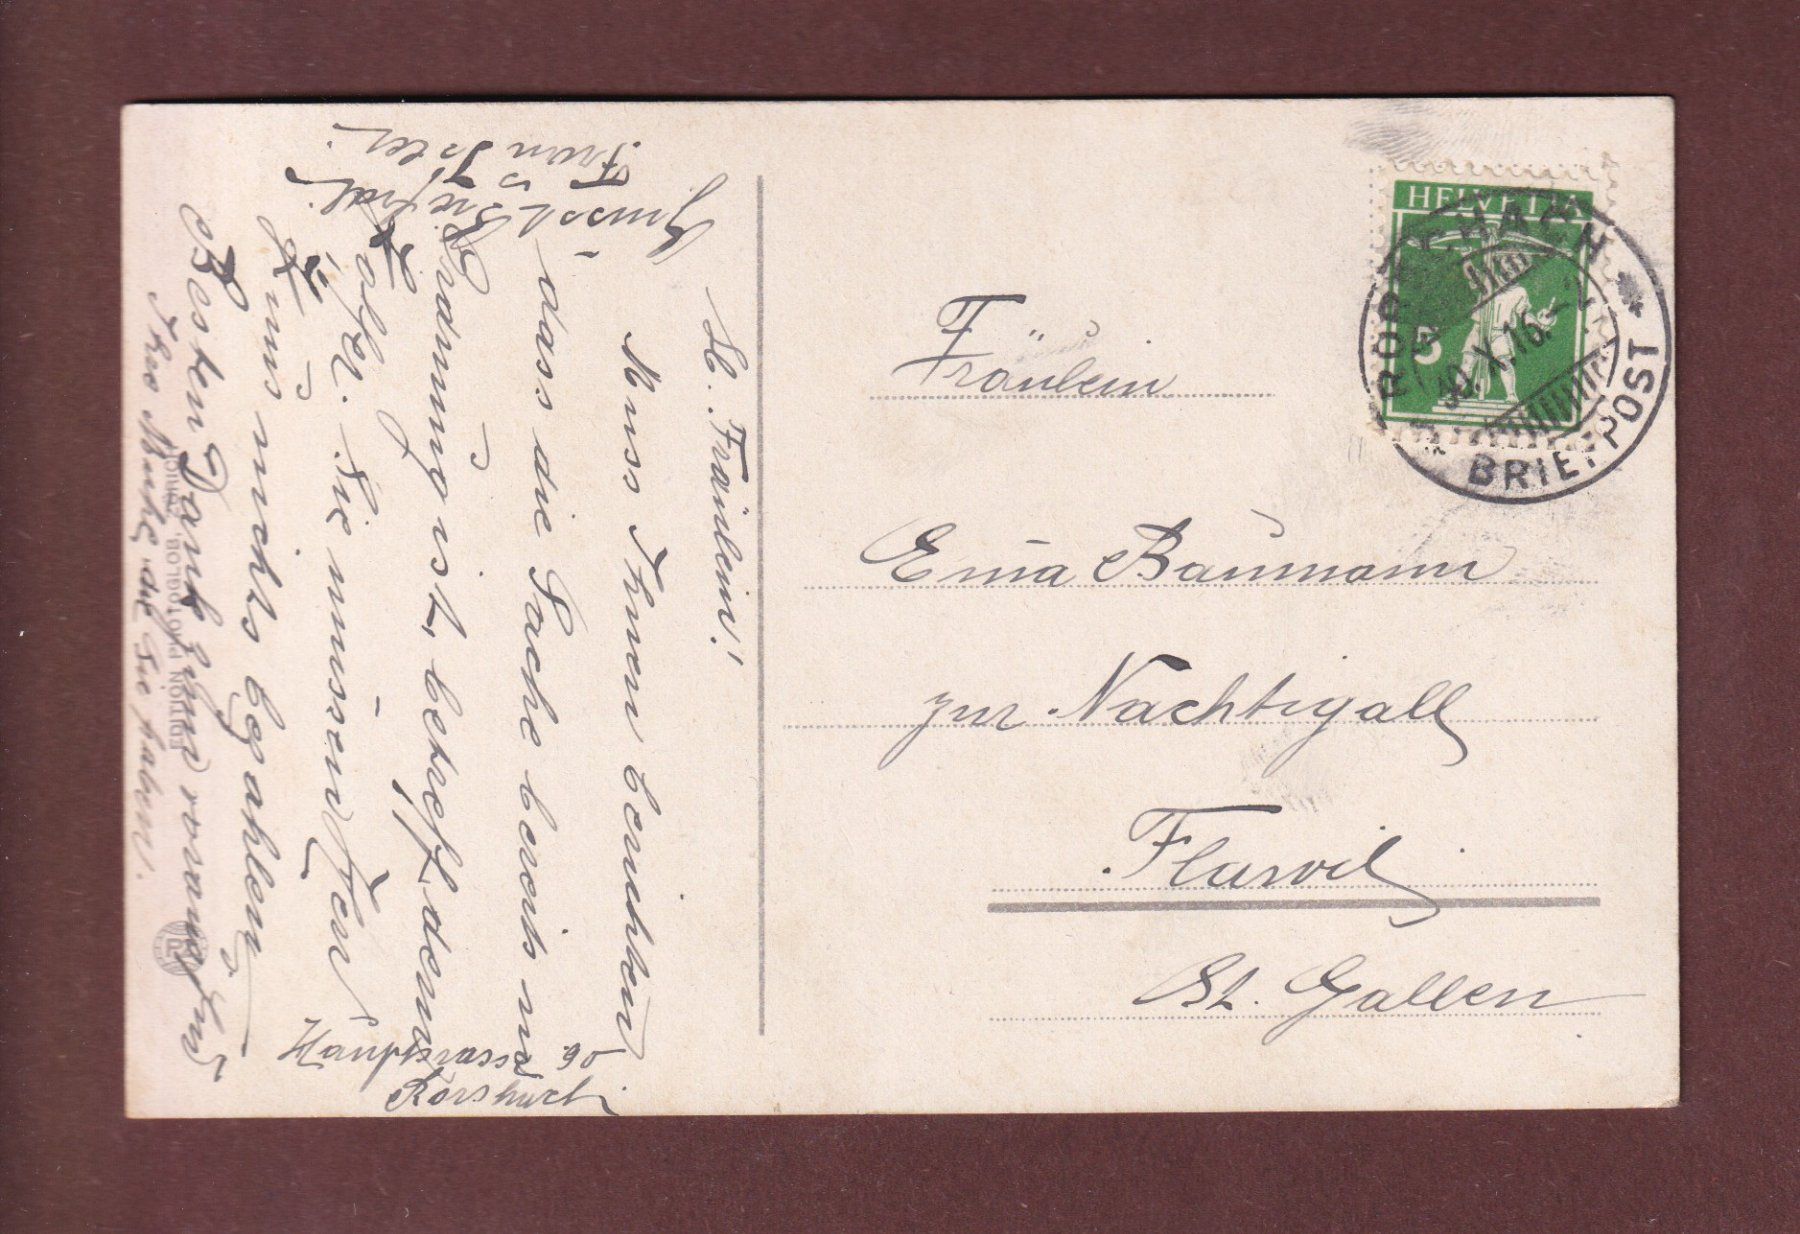 HELVETIA
5
RORSCHACH
10.X.16.
BRIEFPOST
Fräulein
Ema Baumann
zur Nachtigall
Flawil
St. Gallen
Fräulein!
Muss Ihnen berichten
dass die Sache bereits in
Ordnung ist, betreff. denn
Sie müssen
uns nichts bezahlen
Besten Dank
Ihre Mühe die Sie haben.
Gruss
Frau
Hauptsrasse 90
Rorshach
EDITION PHOTOGLOB, ZÜRICH